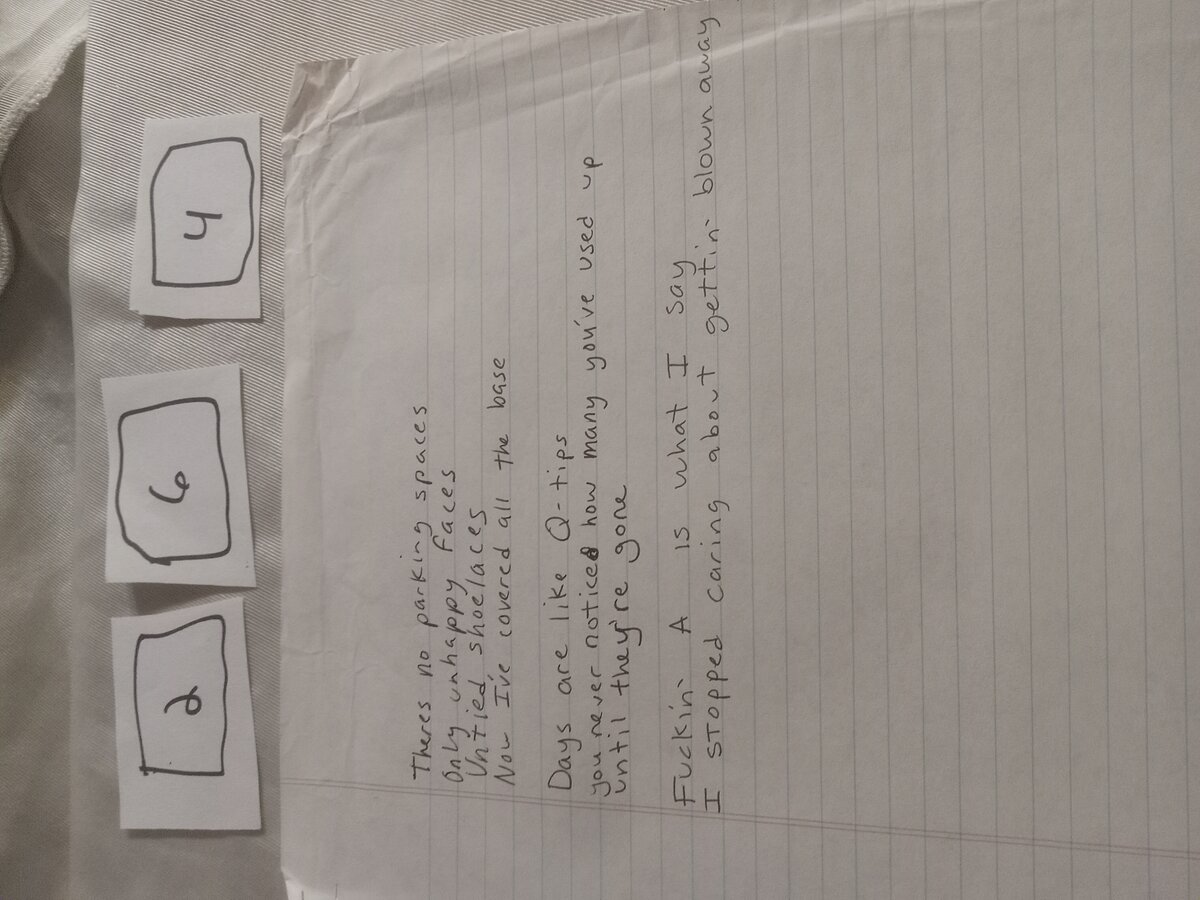 2 6 4
Theres no parking spaces
Only unhappy faces
Untied shoelaces
Now I've covered all the base
Days are like Q-tips
you never noticed how many you've used up
until they're gone
Fuckin' A is what I say
I stopped caring about gettin' blown away